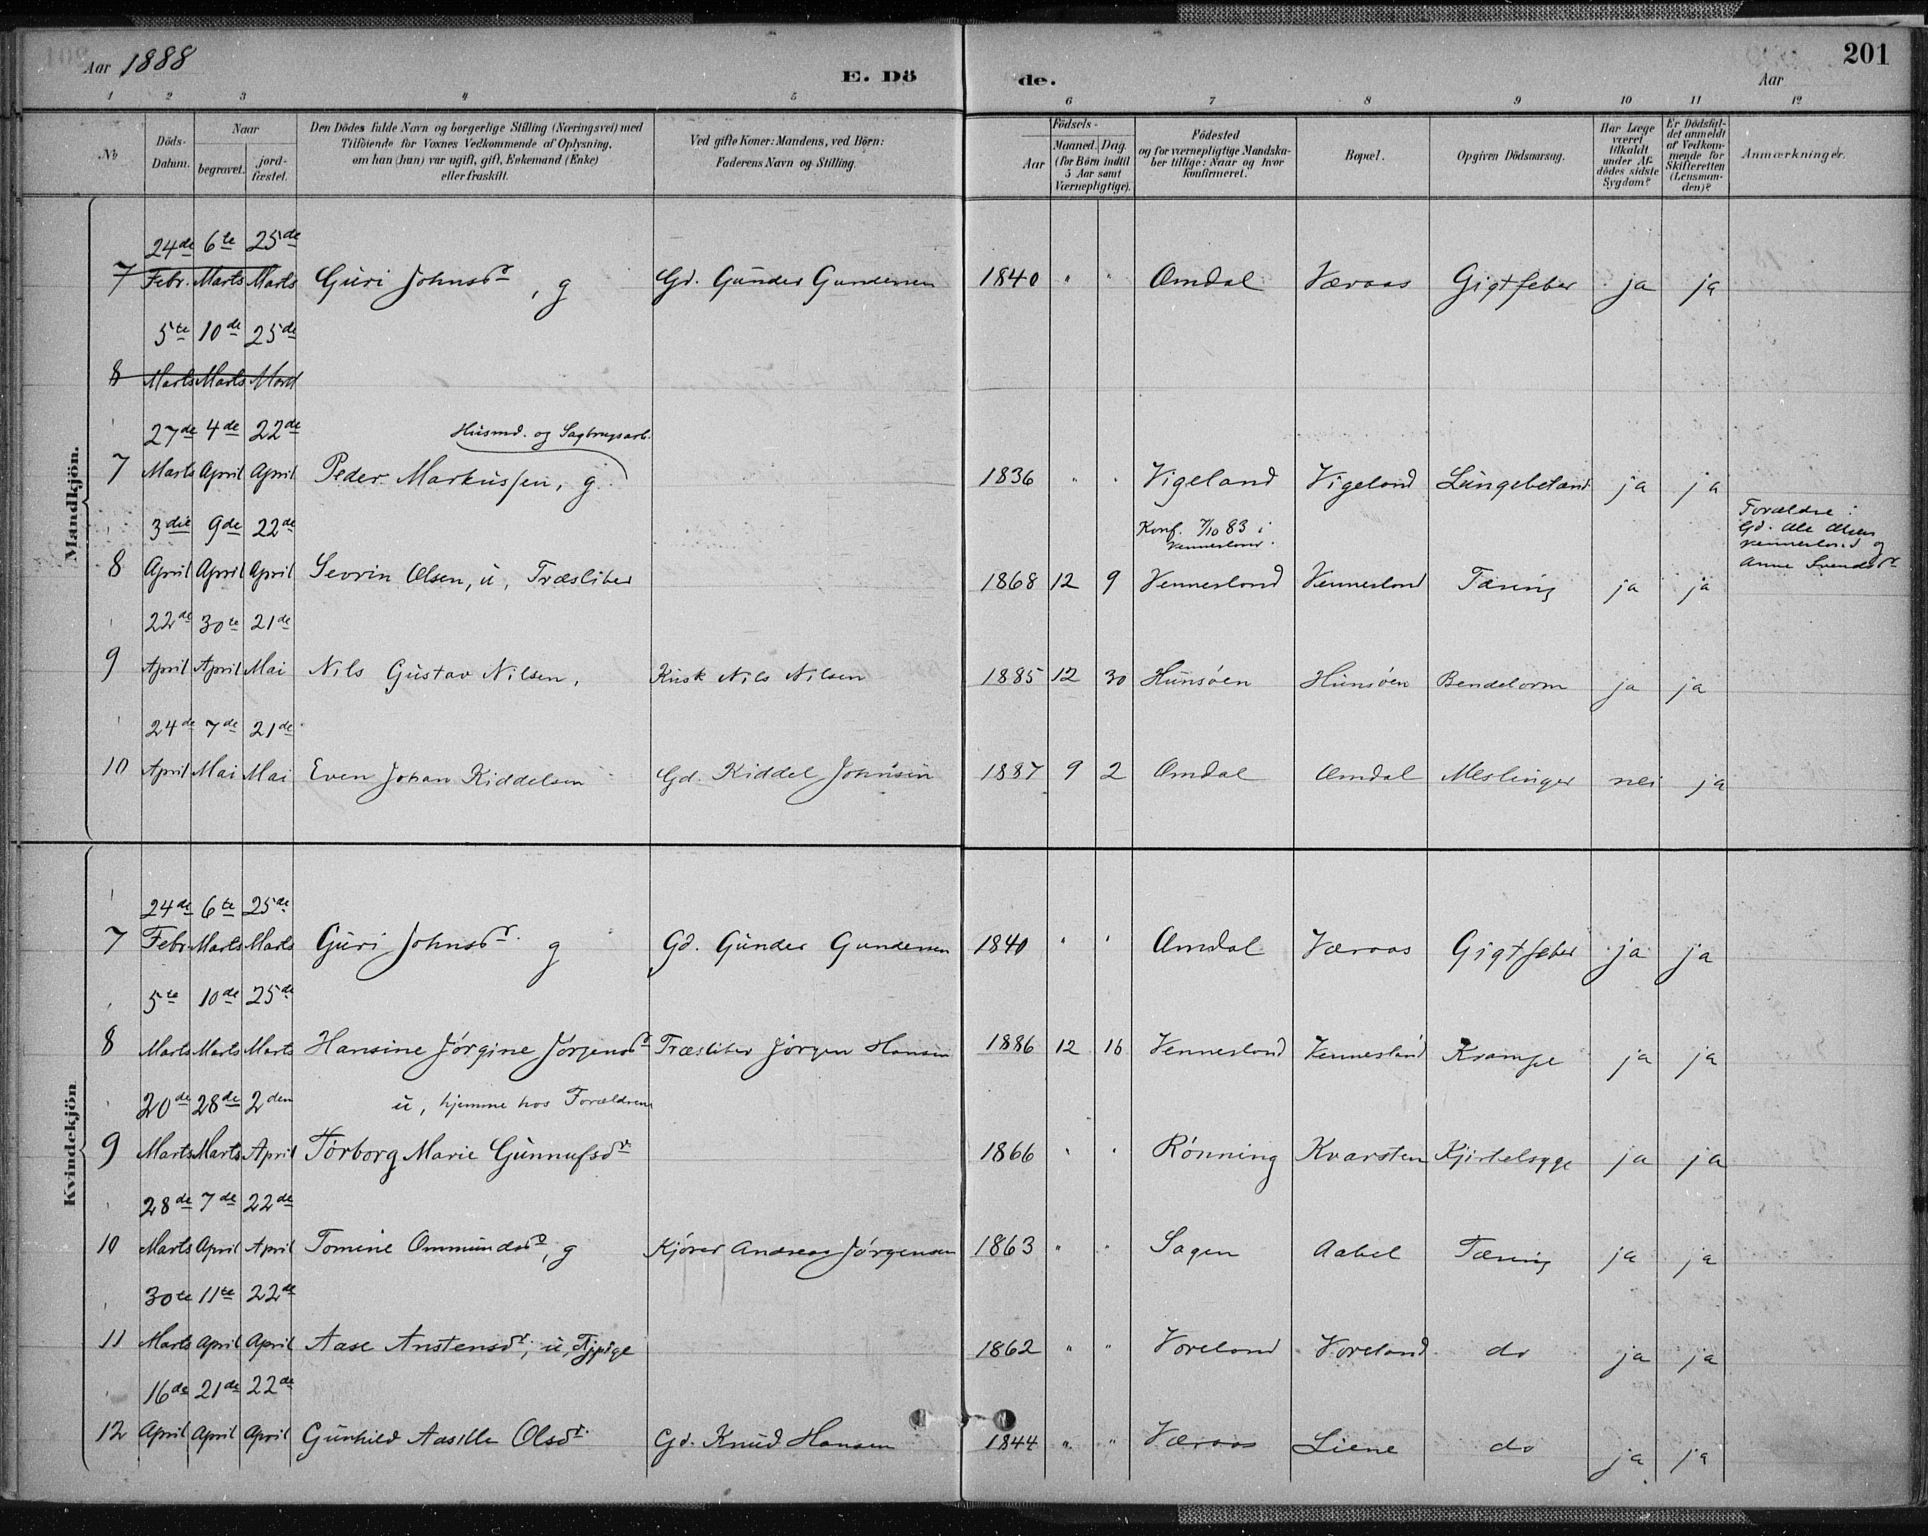 Aar 1888 E. Döde. Aar 201
1 2 3 4 5 6 7 8 9 10 11 12
No Döds-Datum. Naar begravet. jord-fæstet. Den Dödes fulde Navn og borgerlige Stilling (Næringsvei) med Tilföiende for Voxnes Vedkommende af Oplysning, om han (hun) var ugift, gift, Enkemand (Enke) eller fraskilt. Ved gifte Koner: Mandens, ved Börn: Faderens Navn og Stilling. Födsels- Aar Maaned. Dag. (for Börn indtil 5 Aar samt Værnepligtige). Födested og for værnepligtige Mandskaber tillige: Naar og hvor konfirmeret. Bopæl. Opgiven Dödsaarsag. Har Læge været tilkaldt under Afdödes sidste Sygdom? Er Dödsfaldet anmeldt af Vedkommende for Skifteretten (Lensmanden)? Anmærkninger.
Mandkjön.
24de 6te 25de
7 Febr. Marts Marts Guri Johnsdr, g Gd. Gunder Gundersen 1840 " " Omdal Væraas Gigtfeber ja ja
5te 10de 25de
8 Marts Marts Marts
27de 4de 22de Husmd. og Sagbrugsarb.
7 Marts April April Peder Markussen, g. 1836 " " Vigeland Vigeland Lungebetænd ja ja
3die 9de 22de Konf. 7/10 83 i Vennesland. Forældre: Gd. Ole Olsen Vennesland og Anne Svendsdr
8 April April April Sevrin Olsen, u, Træsliber 1868 12 9 Vennesland Vennesland Tæring ja ja
22de 30te 21de
9 April April Mai Nils Gustav Nilsen, Kusk Nils Nilsen 1885 12 30 Hunsöen Hunsöen Bendelorm ja ja
24de 7de 21de
10 April Mai Mai Even Johan Kiddelsen Gd. Kiddel Johnsen 1887 9 2 Omdal Omdal Meslinger nei ja
Kvindekjön
24de 6te 25de
7 Febr. Marts Marts Guri Johnsdr. g Gd. Gunder Gundersen 1840 " " Omdal Væraas Gigtfeber ja ja
5te 10de 25de
8 Marts Marts Marts Hansine Jørgine Jørgensdr Træsliber Jørgen Hansen 1886 12 16 Vennesland Vennesland Krampe ja ja
20de 28de 2den u, hjemme hos Forældrene
9 Marts Marts April Torborg Marie Gunnufsdr 1866 " " Rønning Kvarsten Kjirtelsyge ja ja
28de 7de 22de
10 Marts April April Tomine Ommundsdr, g Kjører Andreas Jørgensen 1863 " " Sagen Aabel Tæring ja ja
30te 11te 22de
11 Marts April April Aase Anstensdr, u, Tjpige 1862 " " Voreland Voreland do ja ja
16de 21de 22de
12 April April April Gunhild Aasille Olsdr. Gd. Knud Hansen 1844 " " Væraas Liene do ja ja